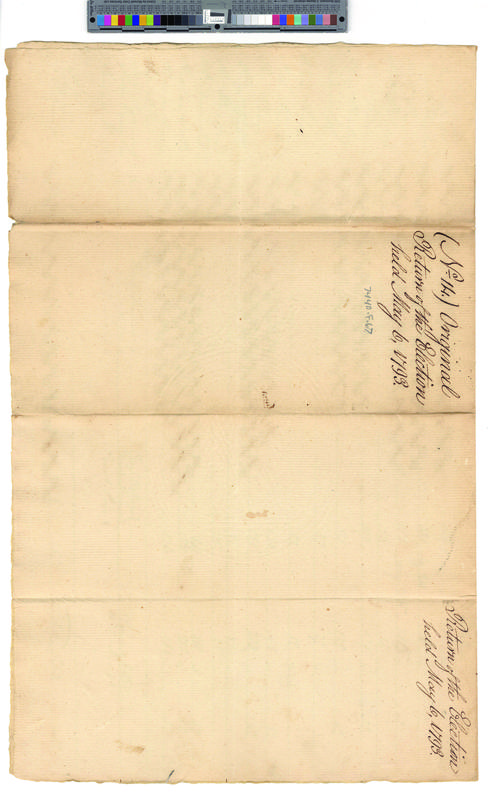 (No. 14.) Original
Return of the Election
held May 6, 1793.
7440-F-67
Return of the Election
held May 6, 1793.